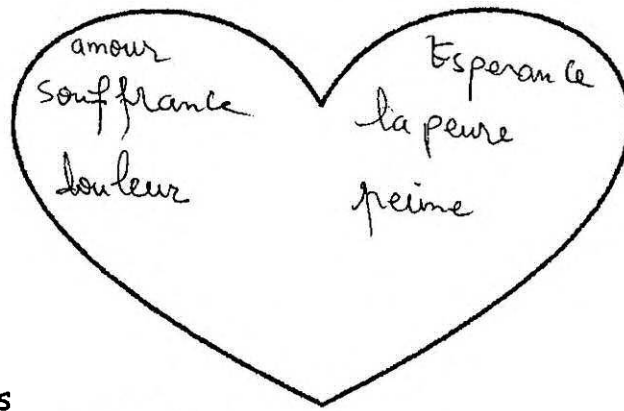 amour
souffrance
douleur
Esperance
la peure
peine
s